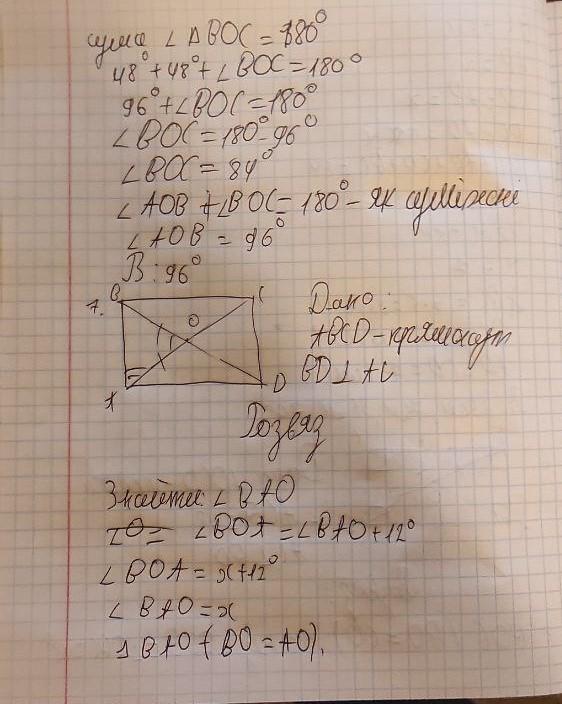 сума ∠ ΔBOC = 180°
48° + 48° + ∠BOC = 180°
96° + ∠BOC = 180°
∠BOC = 180° - 96°
∠BOC = 84°
∠AOB + ∠BOC = 180° - як суміжні
∠AOB = 96°
В: 96°
7.
B C
O
A D
Дано:
ABCD - прямокут
BD ⊥ AC
Розвяз
Знайти: ∠BAO
∠O = ∠BOA = ∠BAO + 12°
∠BOA = x + 12°
∠BAO = x
Δ BAO (BO = AO).